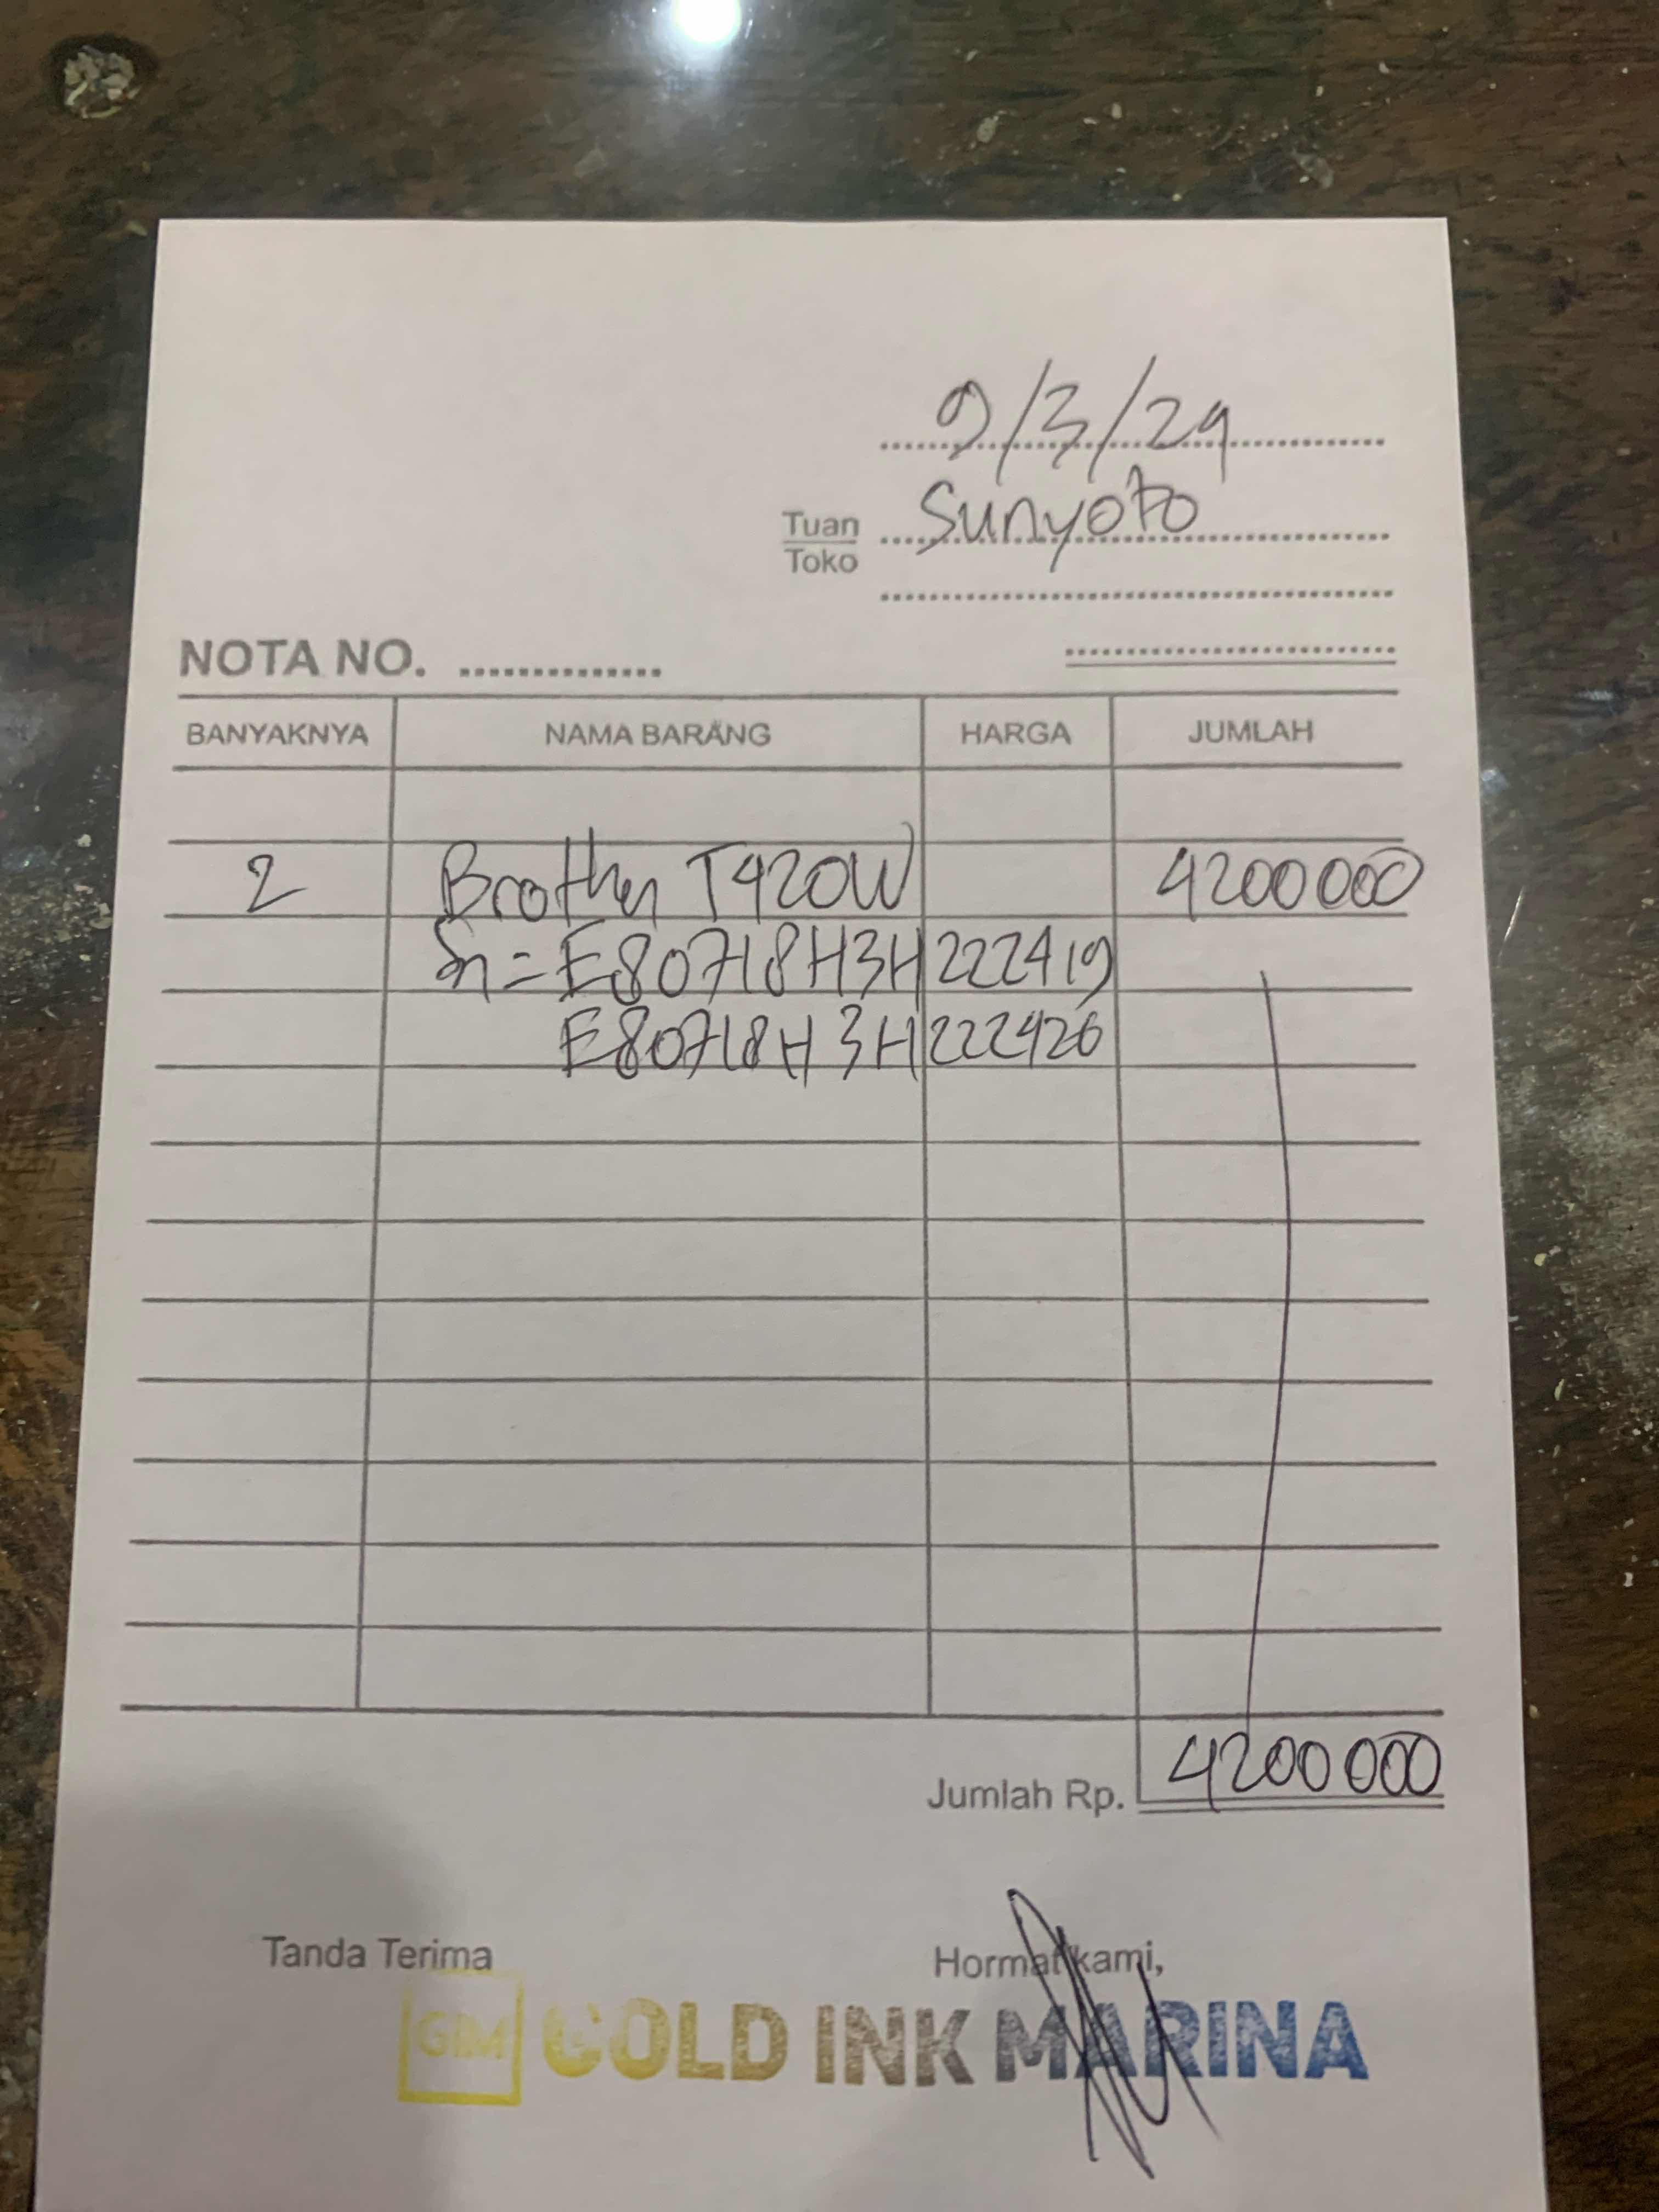 9/3/24
Tuan Sunyoto
Toko
NOTA NO. ..............
BANYAKNYA NAMA BARANG HARGA JUMLAH
2 Brother T420W 4200000
Sn = E80718H3H222419
E80718H3H222426
Jumlah Rp. 4200000
Tanda Terima Hormat kami,
GIM GOLD INK MARINA